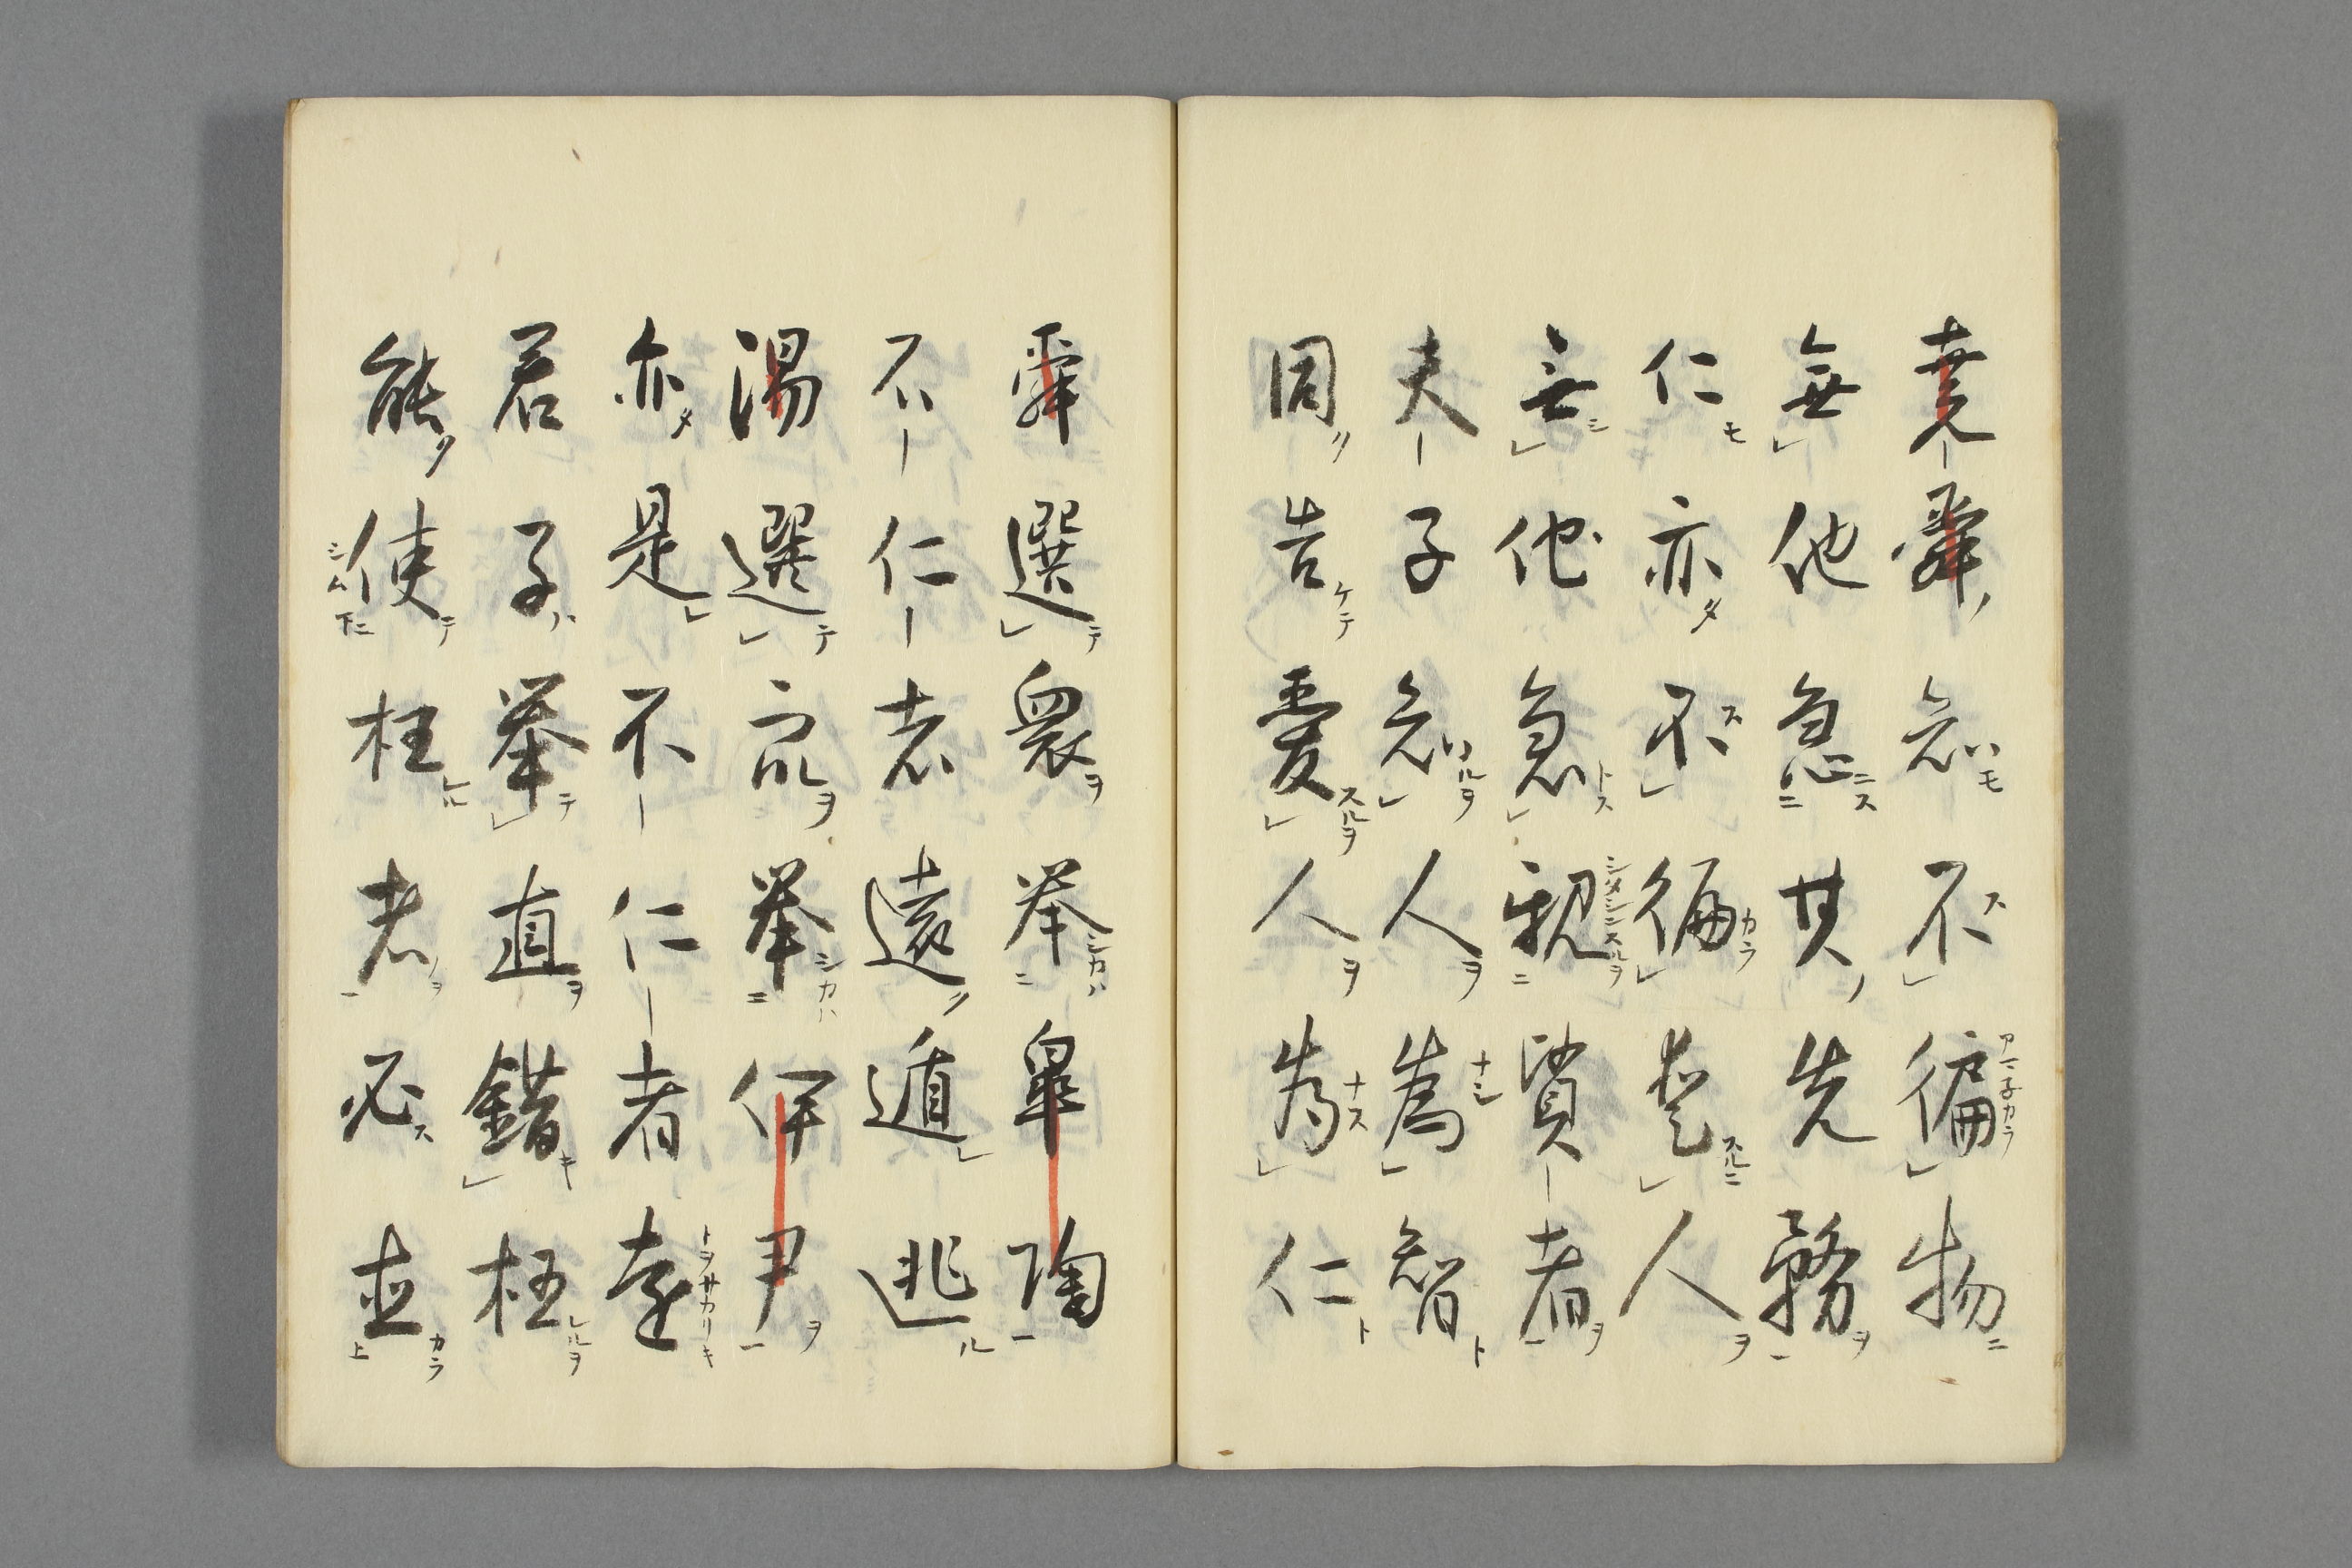 堯舜知不徧物
無他急其先務
仁亦不徧愛人
無他急親賢者
夫子知人為智
同告愛人為仁
舜選衆挙皐陶
不仁者遠遁逃
湯選衆挙伊尹
亦是不仁者遠
君子挙直錯枉
能使枉者必直